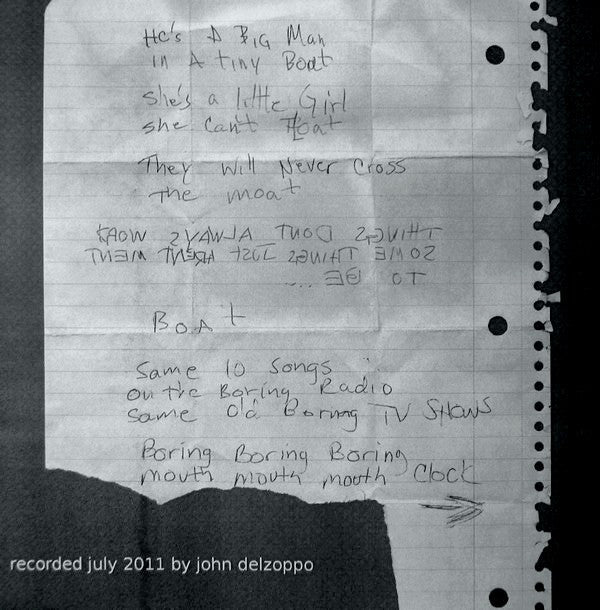 He's A Big Man
in A tiny Boat
She's a little Girl
she can't Float
They will Never Cross
the moat
THINGS DONT ALWAYS WORK
SOME THINGS JUST ARENT MENT
TO BE ....
BOAt
Same 10 Songs
on the Boring Radio
Same Old Boring TV SHOWS
Boring Boring Boring
mouth mouth mouth Clock
recorded july 2011 by john delzoppo